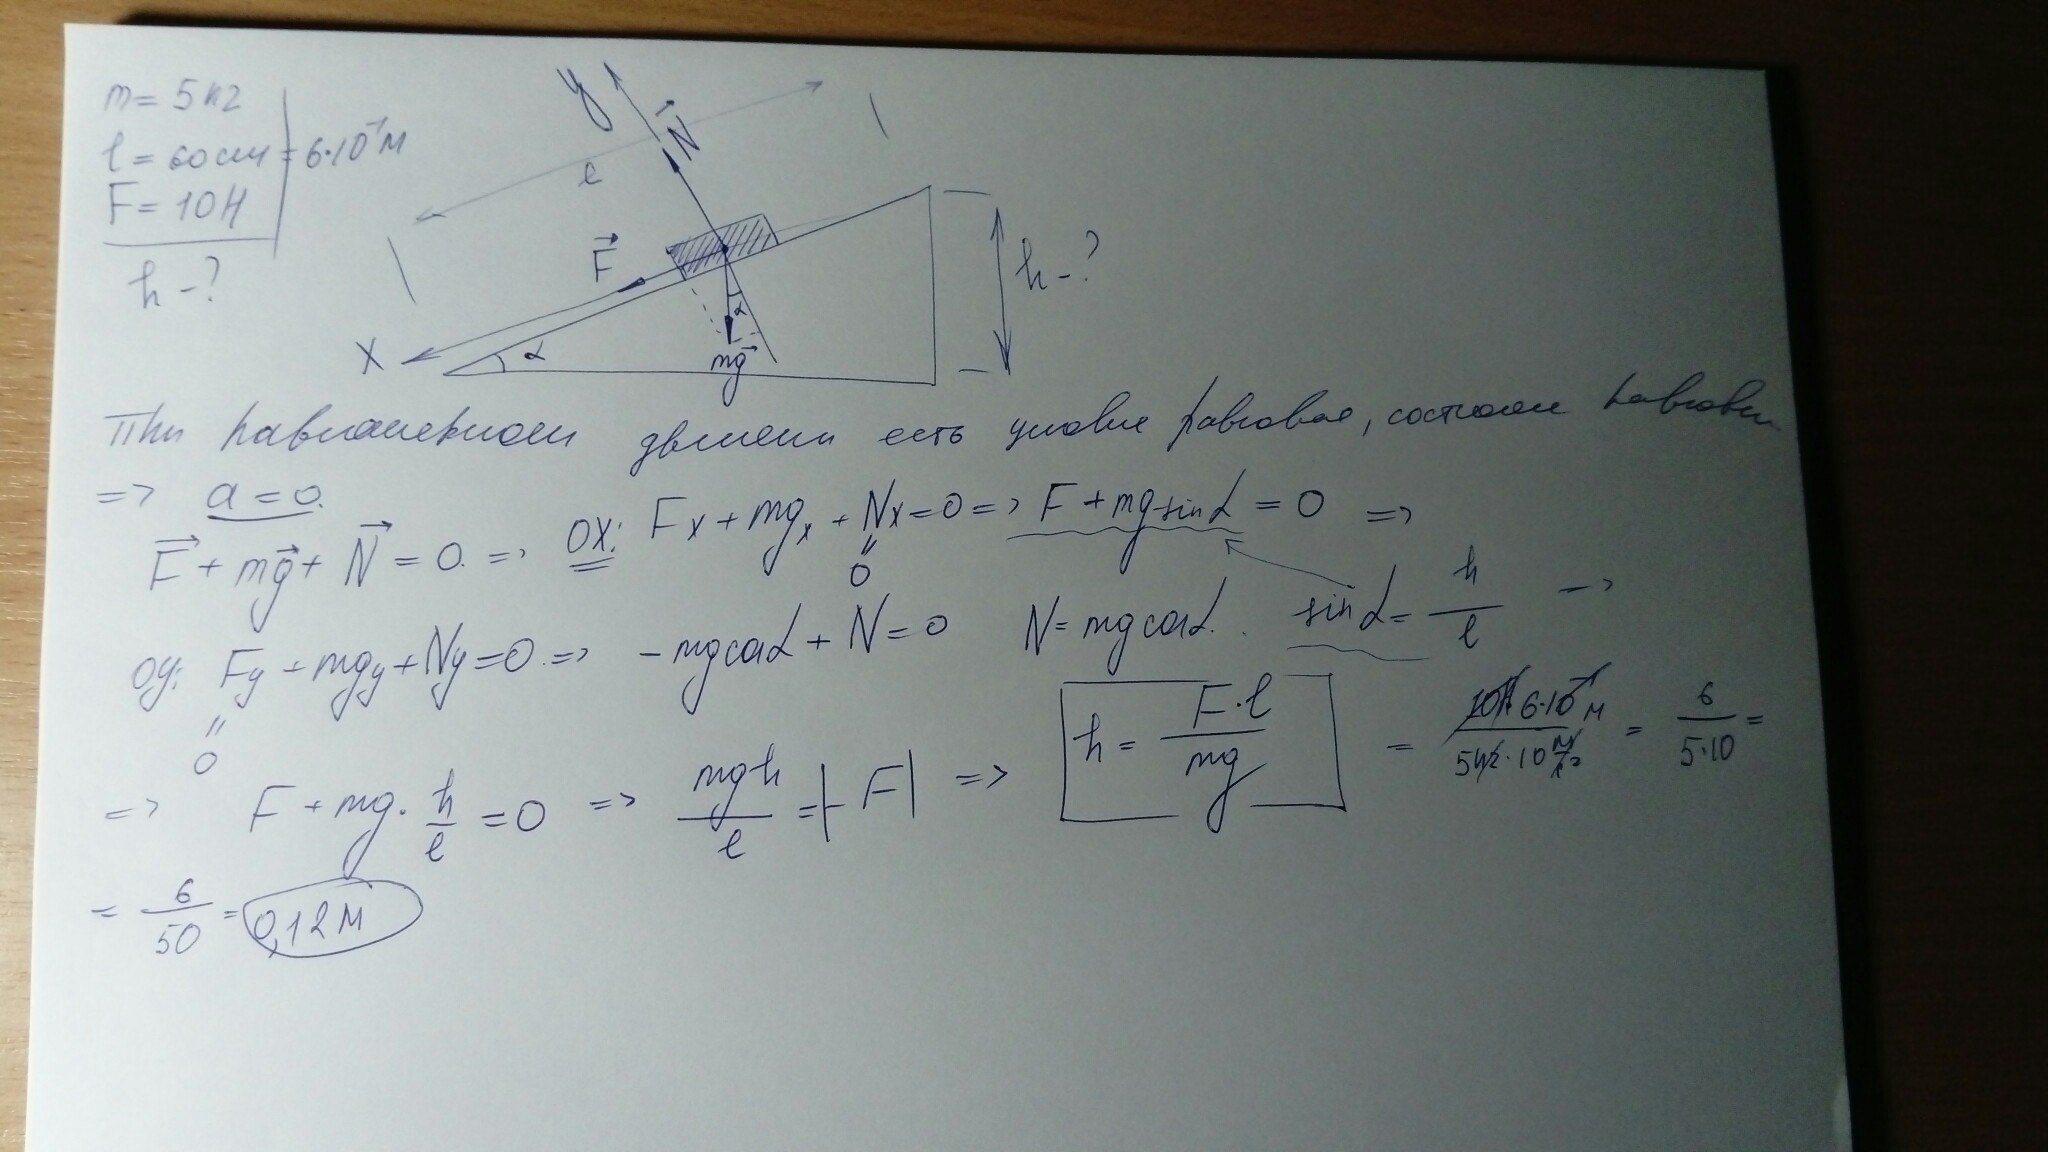 m = 5 кг
l = 60 см = 6·10⁻¹ м
F = 10 Н
h - ?
y
N⃗
l
F⃗
h - ?
X
α
α
mg⃗
При равномерном движении есть условие равновес, состояние равновесия
=> a = 0.
F⃗ + mg⃗ + N⃗ = 0. => OX: Fx + mgx + Nx = 0 => F + mg sinα = 0 =>
0
OY: Fy + mgy + Ny = 0 => - mg cosα + N = 0 N = mg cosα. sinα = h/l =>
0
=> F + mg · h/l = 0 => mgh/l = |-F| => h = F·l/mg = 10Н·6·10⁻¹ м/5кг·10 Н/кг = 6/5·10 =
= 6/50 = 0,12 м